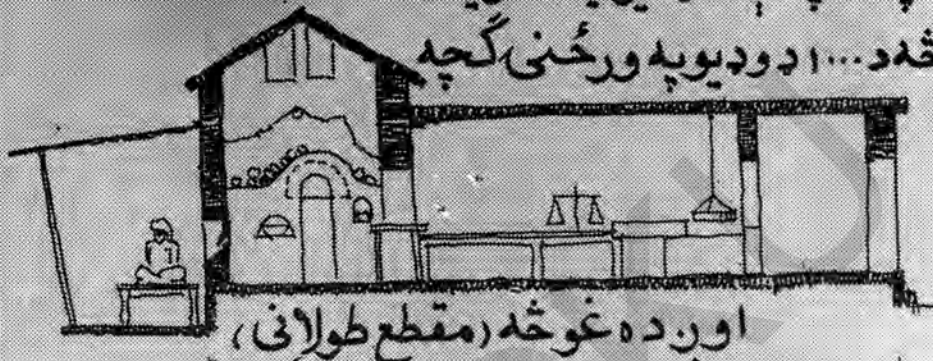 څه د...۱ ډوډیو په ورځنی گچه
اوږده غوڅه (مقطع طولانی)